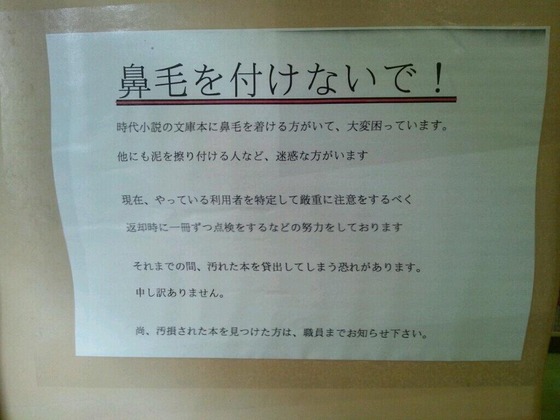 鼻毛を付けないで！
時代小説の文庫本に鼻毛を着ける方がいて、大変困っています。
他にも泥を擦り付ける人など、迷惑な方がいます
現在、やっている利用者を特定して厳重に注意をするべく
返却時に一冊ずつ点検をするなどの努力をしております
それまでの間、汚れた本を貸出してしまう恐れがあります。
申し訳ありません。
尚、汚損された本を見つけた方は、職員までお知らせ下さい。